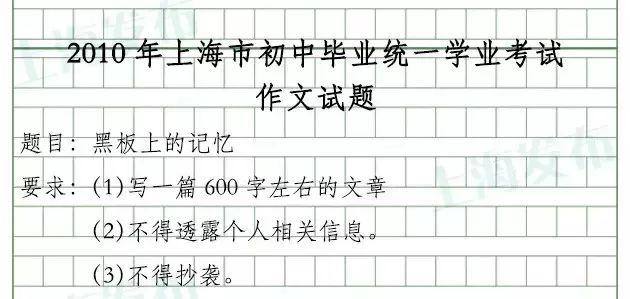 2010年上海市初中毕业统一学业考试
作文试题
题目：黑板上的记忆
要求：(1)写一篇600字左右的文章
(2)不得透露个人相关信息。
(3)不得抄袭。
上海发布
上海发布